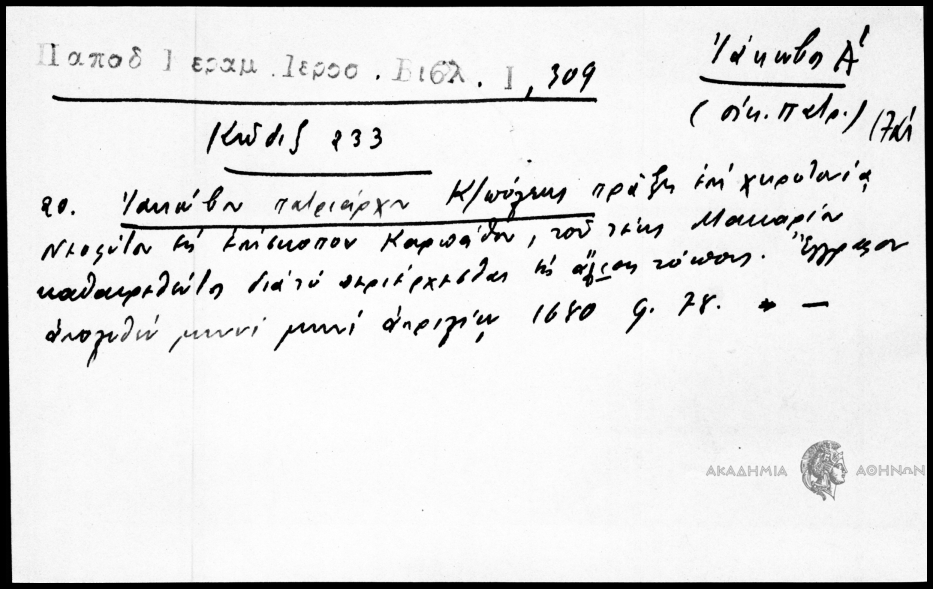 Παποδ Ιεραμ. Ιεροσ. Βιβλ. Ι, 309
Ἰάκωβος Α΄
(οἰκ. πατρ.)
Κῶδιξ 233
20. Ἰακώβου πατριάρχου Κ/πόλεως πρᾶξις ἐπὶ χειροτονίᾳ
Νεοφύτου εἰς ἐπίσκοπον Καρπάθου, τοῦ τέως Μακαρίου
καθαιρεθέντος διὰ τὸ περιέρχεσθαι εἰς ἄλλους τόπους. Ἔγγραφον
ἀπολυθὲν μηνὶ μηνὶ ἀπριλίῳ 1680 φ. 78. —
ΑΚΑΔΗΜΙΑ ΑΘΗΝΩΝ